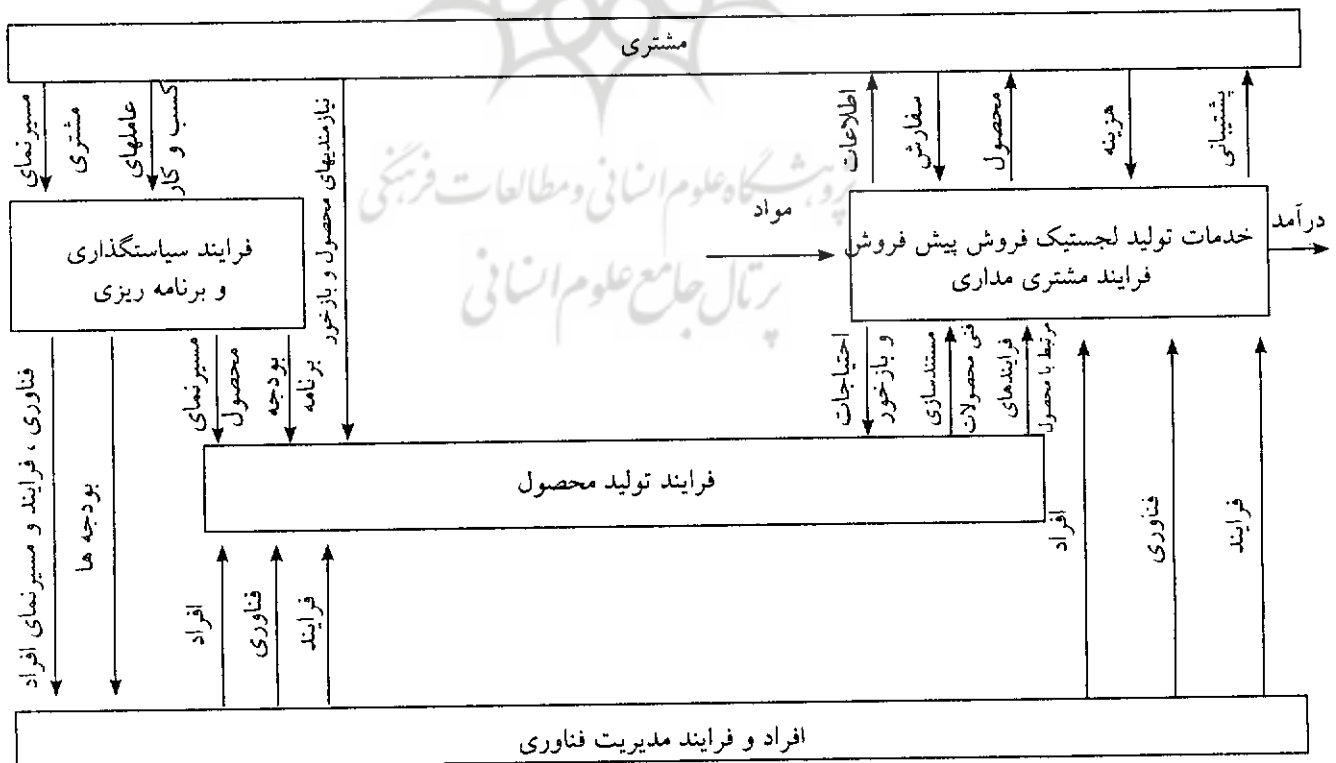 مشتری
مسیرنمای
مشتری
عاملهای
کسب و کار
نیازمندیهای محصول و بازخورد
اطلاعات
سفارش
محصول
هزینه
پشتیبانی
پژوهشگاه علوم انسانی و مطالعات فرهنگی
پرتال جامع علوم انسانی
فرایند سیاستگذاری
و برنامه ریزی
مواد
خدمات تولید لجستیک فروش پیش فروش
فرایند مشتری مداری
درآمد
فناوری ، فرایند و مسیرنمای افراد
بودجه ها
مسیرنمای
محصول
بودجه
برنامه
احتیاجات
و بازخور
مستندسازی
فنی محصولات
فرایندهای
مرتبط با محصول
فرایند تولید محصول
افراد
فناوری
فرایند
افراد
فناوری
فرایند
افراد و فرایند مدیریت فناوری